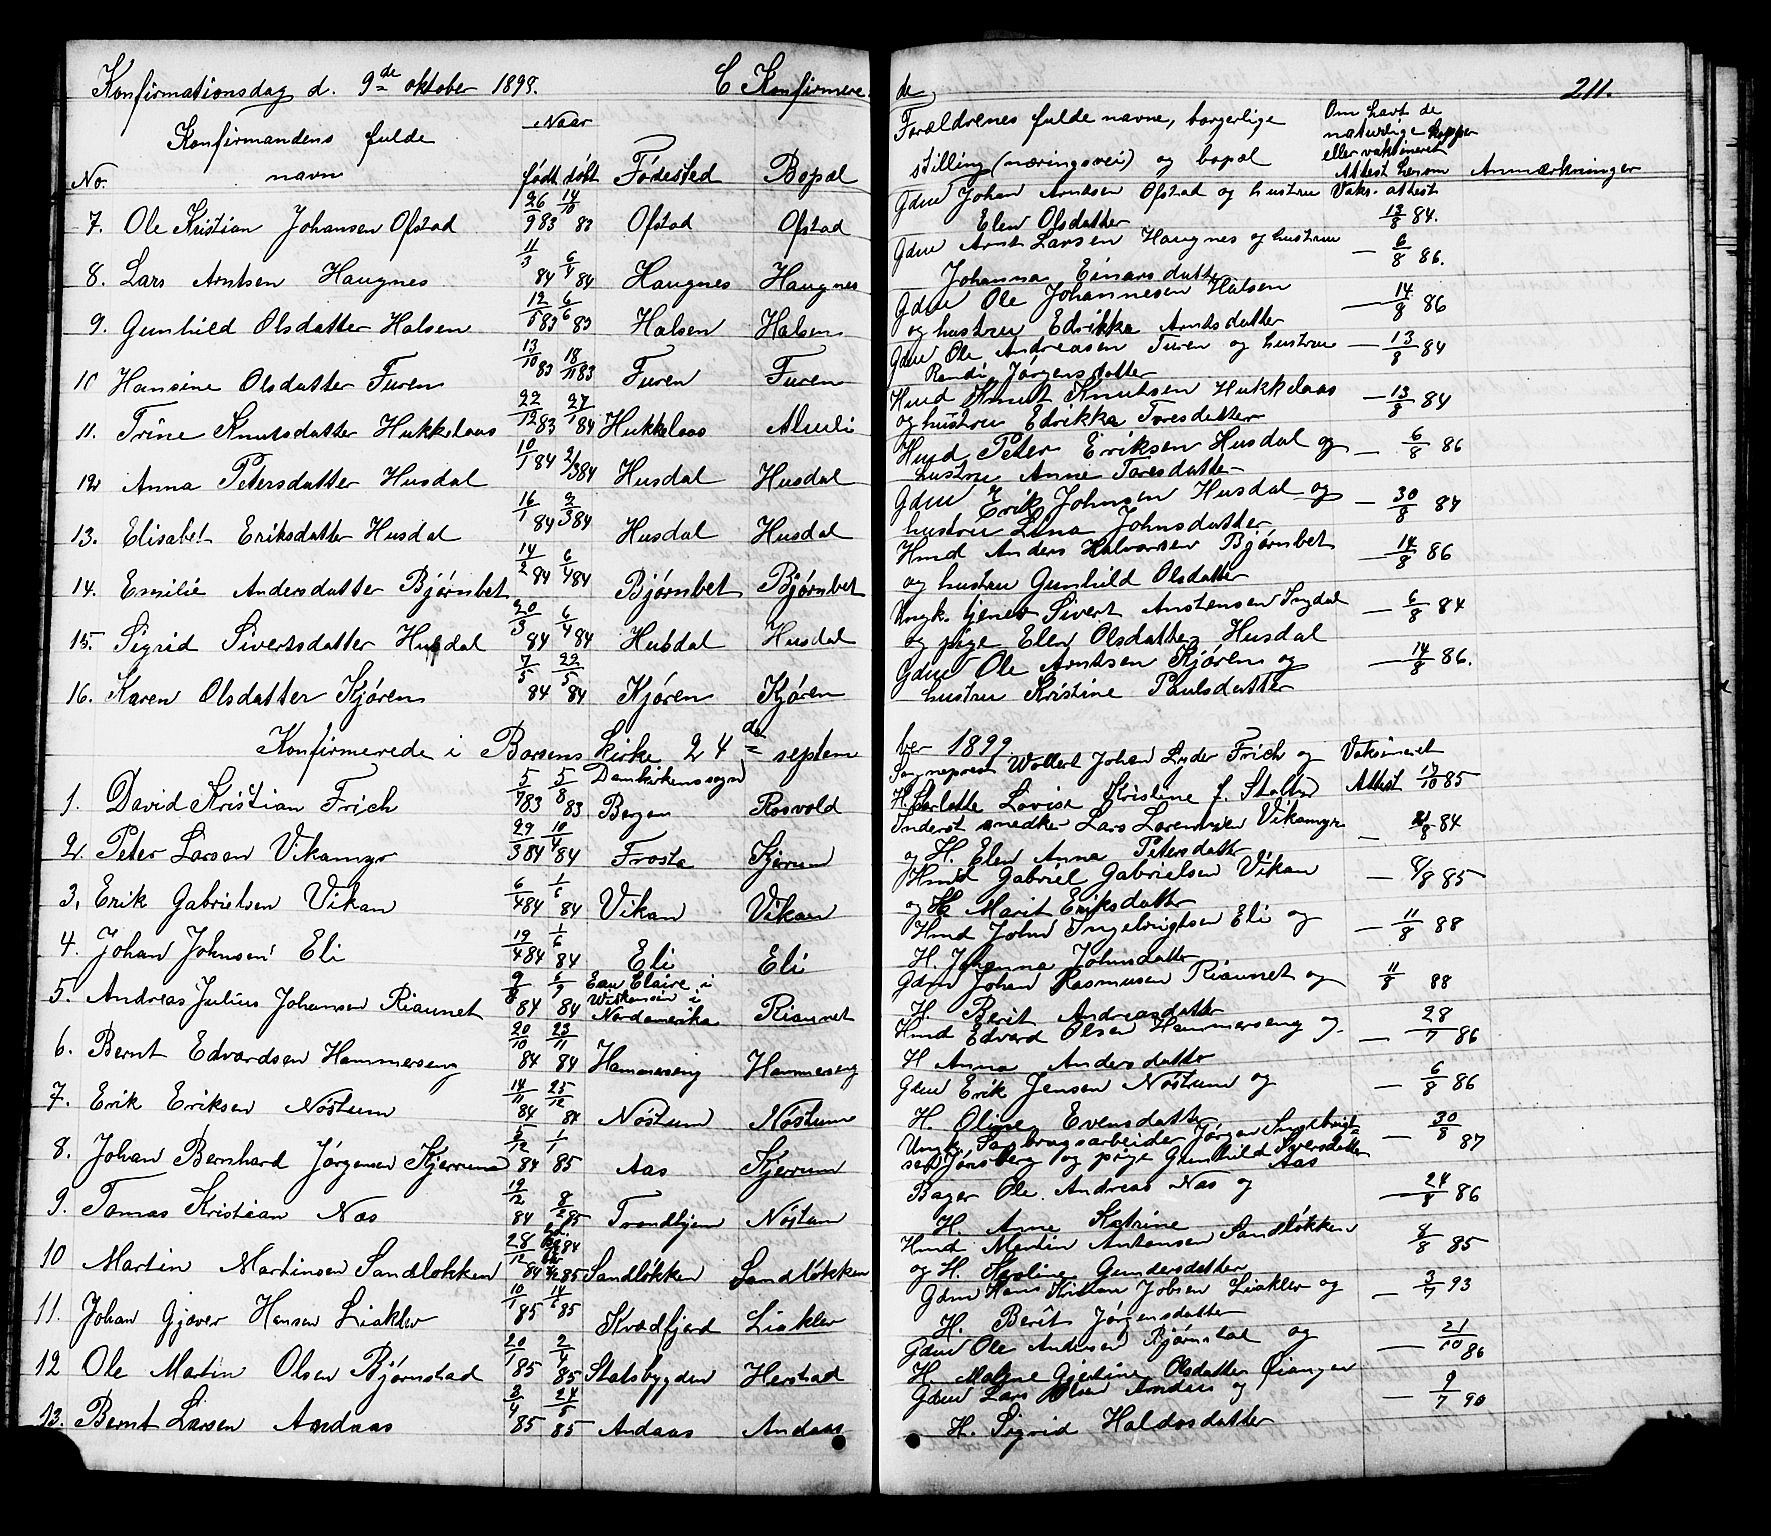 Konfirmationsdag d. 9de oktober 1898. C Konfirmere
de 211.
Konfirmandens fulde navn
No. Naar født døbt Fødested Bopæl
Forældrenes fulde navne, borgerlige stilling (næringsvei) og bopæl
Om havt de naturlige kopper eller vaksineret Attest herom Anmærkninger
7. Ole Kristian Johansen Ofstad 26/9 83 14/10 83 Ofstad Ofstad Gdm Johan Arntsen Ofstad og hustru Vaks. attest
Elen Olsdatter 13/8 84.
8. Lars Arntsen Haugnes 11/3 84 6/4 84 Haugnes Haugnes Gdm Arnt Larsen Haugnes og hustru — 6/8 86.
Johanna Einarsdatter
9. Gunhild Olsdatter Halsen 12/5 83 6/6 83 Halsen Halsen Gdm Ole Johannesen Halsen — 14/8 86
og hustru Edrikka Arntsdatter
10 Hansine Olsdatter Furen 13/10 83 18/11 83 Furen Furen Gdm Ole Andreasen Furen og hustru — 13/8 84
Randi Jørgensdatter
11. Trine Knutsdatter Hukkelaas 22/12 83 27/1 84 Hukkelaas Husd Knut Knutsen Hukkelaas — 13/8 84
og hustru Edrikka Toresdatter
12 Anna Petersdatter Husdal 10/1 84 2/3 84 Husdal Husdal Husd Peter Eriksen Husdal og — 6/8 86
hustru Anne Toresdatter
13. Elisabet Eriksdatter Husdal 16/1 84 2/3 84 Husdal Husdal Gdm Erik Johnsen Husdal og — 30/8 84
hustru Lina Johnsdatter
14. Emilie Andersdatter Bjørnbet 14/2 84 6/4 84 Bjørnbet Bjørnbet Hmd Anders Halvorsen Bjørnbet — 14/8 86
og hustru Gunhild Olsdatter
15. Sigrid Sivertsdatter Husdal 20/3 84 6/4 84 Husdal Husdal Ungk. tjener Sivert Anstensen — 6/8 84
og pige Elen Olsdatter Husdal
16. Karen Olsdatter Kjøren 7/5 84 22/5 84 Kjøren Kjøren Gdm Ole Arntsen Kjøren og — 14/8 86.
hustru Kristine Paulsdatter
Konfirmerede i Børsens kirke 24de septem
ber 1899.
1. David Kristian Frich 5/7 83 5/8 83 Domkirkens sogn Bergen Rosvold Sogneprest Wollert Johan Lyder Frich og Vaksineret
H. Charlotte Lovise Kristine f. Attest 17/10 85
2. Peter Larsen Vikamyr 29/3 84 10/4 84 Frosta Kjerrum Inderst snedker Lars Larentsen Vikamyr — 21/8 84
og H. Elen Anna Petersdatter
3. Erik Gabrielsen Vikan 6/4 84 1/6 84 Vikan Vikan Hmd Gabriel Gabrielsen Vikan — 8/8 85
og H. Marit Eriksdatter
4. Johan Johnsen Eli 19/4 84 1/6 84 Eli Eli Hmd John Ingebrigtsen Eli og — 11/8 88
H. Johanna Johnsdatter
5. Andreas Julius Johansen Riaunet 9/8 84 84 Eau Claire i Wiskonsin i Nordamerika Riaunet Gdm Johan Rasmussen Riaunet og 11/8 88
H. Berit Andreasdatter
6. Bernt Edvardsen Hammerseng 20/10 84 23/11 84 Hammerseng Hammerseng Hmd Edvard Olsen Hammerseng og — 28/7 86
H Anna Andersdatter
7. Erik Eriksen Nøstum 14/11 84 25/12 84 Nøstum Nøstum Gdm Erik Jensen Nøstum og — 6/8 86
H. Oline Evensdatter
8. Johan Bernhard Jørgensen Kjerrum 5/12 84 1/1 85 Aas Kjerrum Ungk. Sagbrugsarbeider Jørgen Ingebrigt= — 30/8 87
sen Jønsberg og pige Gunhild Iversdatter Aas
9. Tomas Kristian Næs 19/12 84 8/2 85 Trondhjem Nøstum Bager Ole Andreas Næs og — 24/8 86
H. Anne Katrine
10 Martin Martinsen Sandløkken 28/12 84 85 Sandløkken Sandløkken Hmd Martin Antonsen Sandløkken 8/8 85
og H. Karoline Gundersdatter
11. Johan Gjæver Hansen Liaklev 10/1 85 14/6 85 Kvædfjord Liaklev Gdm Hans Kristian Jobsen Liaklev og — 3/7 93
H. Berit Jørgensdatter
12 Ole Martin Olsen Bjørnstad 20/1 85 2/4 85 Statsbygden Herstad Gdm Ole Andersen Bjørnstad og — 21/10 86
H. Malene Gjertine Olsdatter Øiangen
13. Bernt Larsen Andaas 3/4 85 24/5 85 Andaas Andaas Gdm Lars Olsen Andaas og — 9/7 90
H. Sigrid Haldosdatter